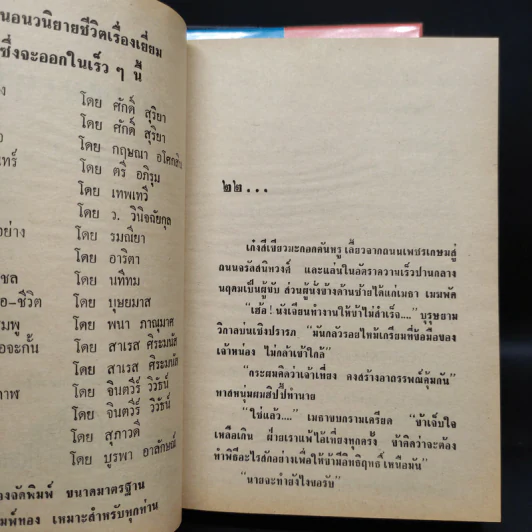 นอนวนิยายชีวิตเรื่องเยี่ยม
ซึ่งจะออกในเร็ว ๆ นี้
โดย ศักดิ์ สุริยา
โดย ศักดิ์ สุริยา
โดย กฤษณา อโศกสิน
โดย ตรี อภิรุม
โดย เทพเทวี
โดย ว. วินิจฉัยกุล
อย่าง โดย รมณียา
โดย อาริตา
ชล โดย นทีทม
อ-ชีวิต โดย บุษยมาส
มพู โดย พนา ภาณุมาศ
อจะกั้น โดย สาเรส ศิระมนัส
โดย สาเรส ศิระมนัส
าพ โดย จินตวีร์ วิวัธน์
โดย จินตวีร์ วิวัธน์
โดย สุภาวดี
โดย บูรพา อาลักษณ์
องจัดพิมพ์ ขนาดมาตรฐาน
มพ์ทอง เหมาะสำหรับทุกท่าน
๒๒...
เก๋งสีเขียวมะกอกคันหรู เลี้ยวจากถนนเพชรเกษมสู่
ถนนจรัลสนิทวงศ์ และแล่นในอัตราความเร็วปานกลาง
นฤดมเป็นผู้ขับ ส่วนผู้นั่งข้างด้านซ้ายได้แก่เมธา เมฆพัด
"เฮ้อ! นังเจียนทำงานให้ข้าไม่สำเร็จ...." บุรุษยาม
วิกาลบ่นเชิงปรารภ "มันกลัวรอยไหม้เกรียมที่ข้อมือของ
เจ้าหน่อง ไม่กล้าเข้าใกล้"
"กระผมคิดว่าเจ้าเที่ยง คงสร้างอาถรรพณ์คุ้มกัน"
ทาสหนุ่มผมฮิปปี้ทำนาย
"ใช่แล้ว...." เมธาขบกรามเครียด "ข้าเจ็บใจ
เหลือเกิน ฝ่ายเราแพ้ไอ้เที่ยงทุกครั้ง ข้าคิดว่าจะต้อง
ทำพิธีอะไรสักอย่างเพื่อให้ข้ามีอิทธิฤทธิ์ เหนือมัน"
"นายจะทำยังไงขอรับ"